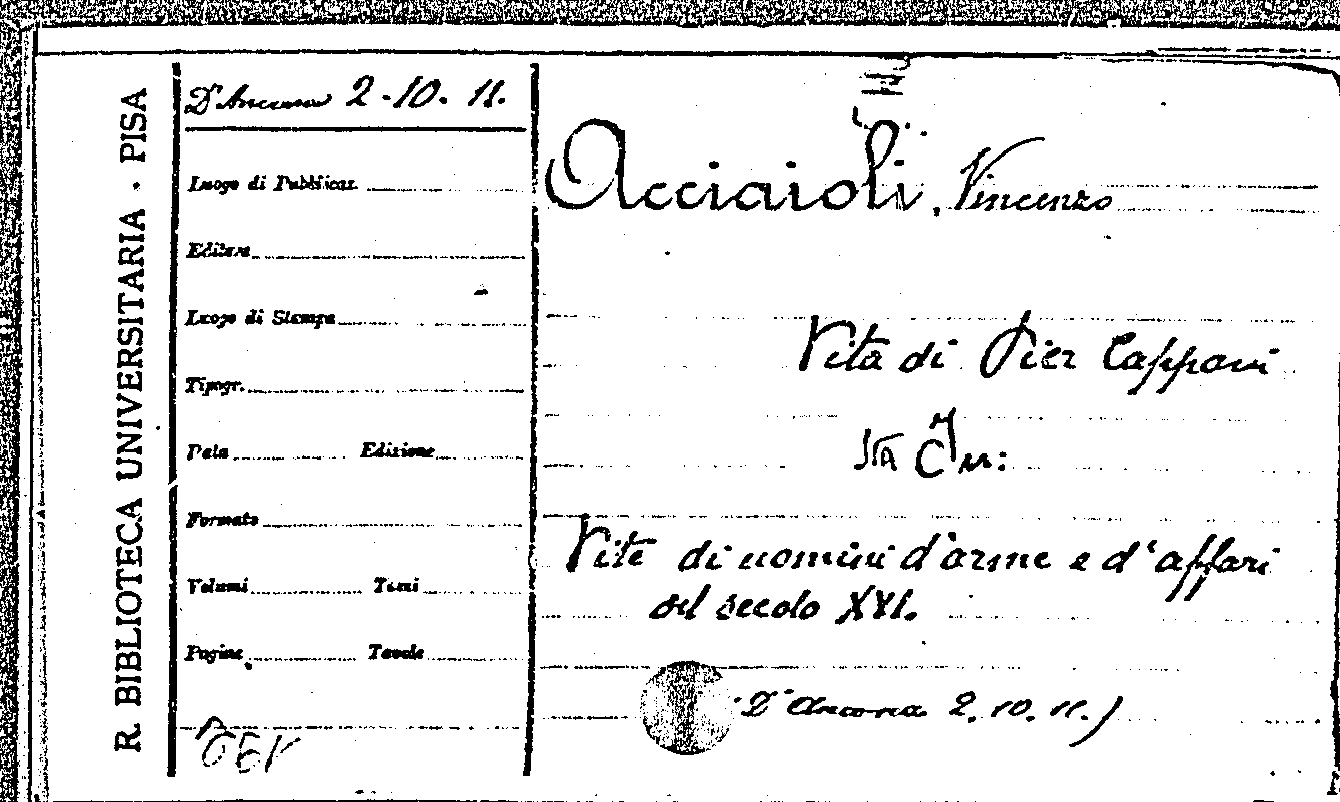 R. BIBLIOTECA UNIVERSITARIA - PISA
D'Ancona 2-10. 11.
Luogo di Pubblicaz.
Editore
Luogo di Stampa
Tipogr.
Data Edizione
Formato
Volumi Tomi
Pagine Tavole
Acciaioli, Vincenzo
Vita di Pier Capponi
Sta in:
Vite di uomini d'arme e d'affari
del secolo XVI.
(D'Ancona 2. 10. 11.)